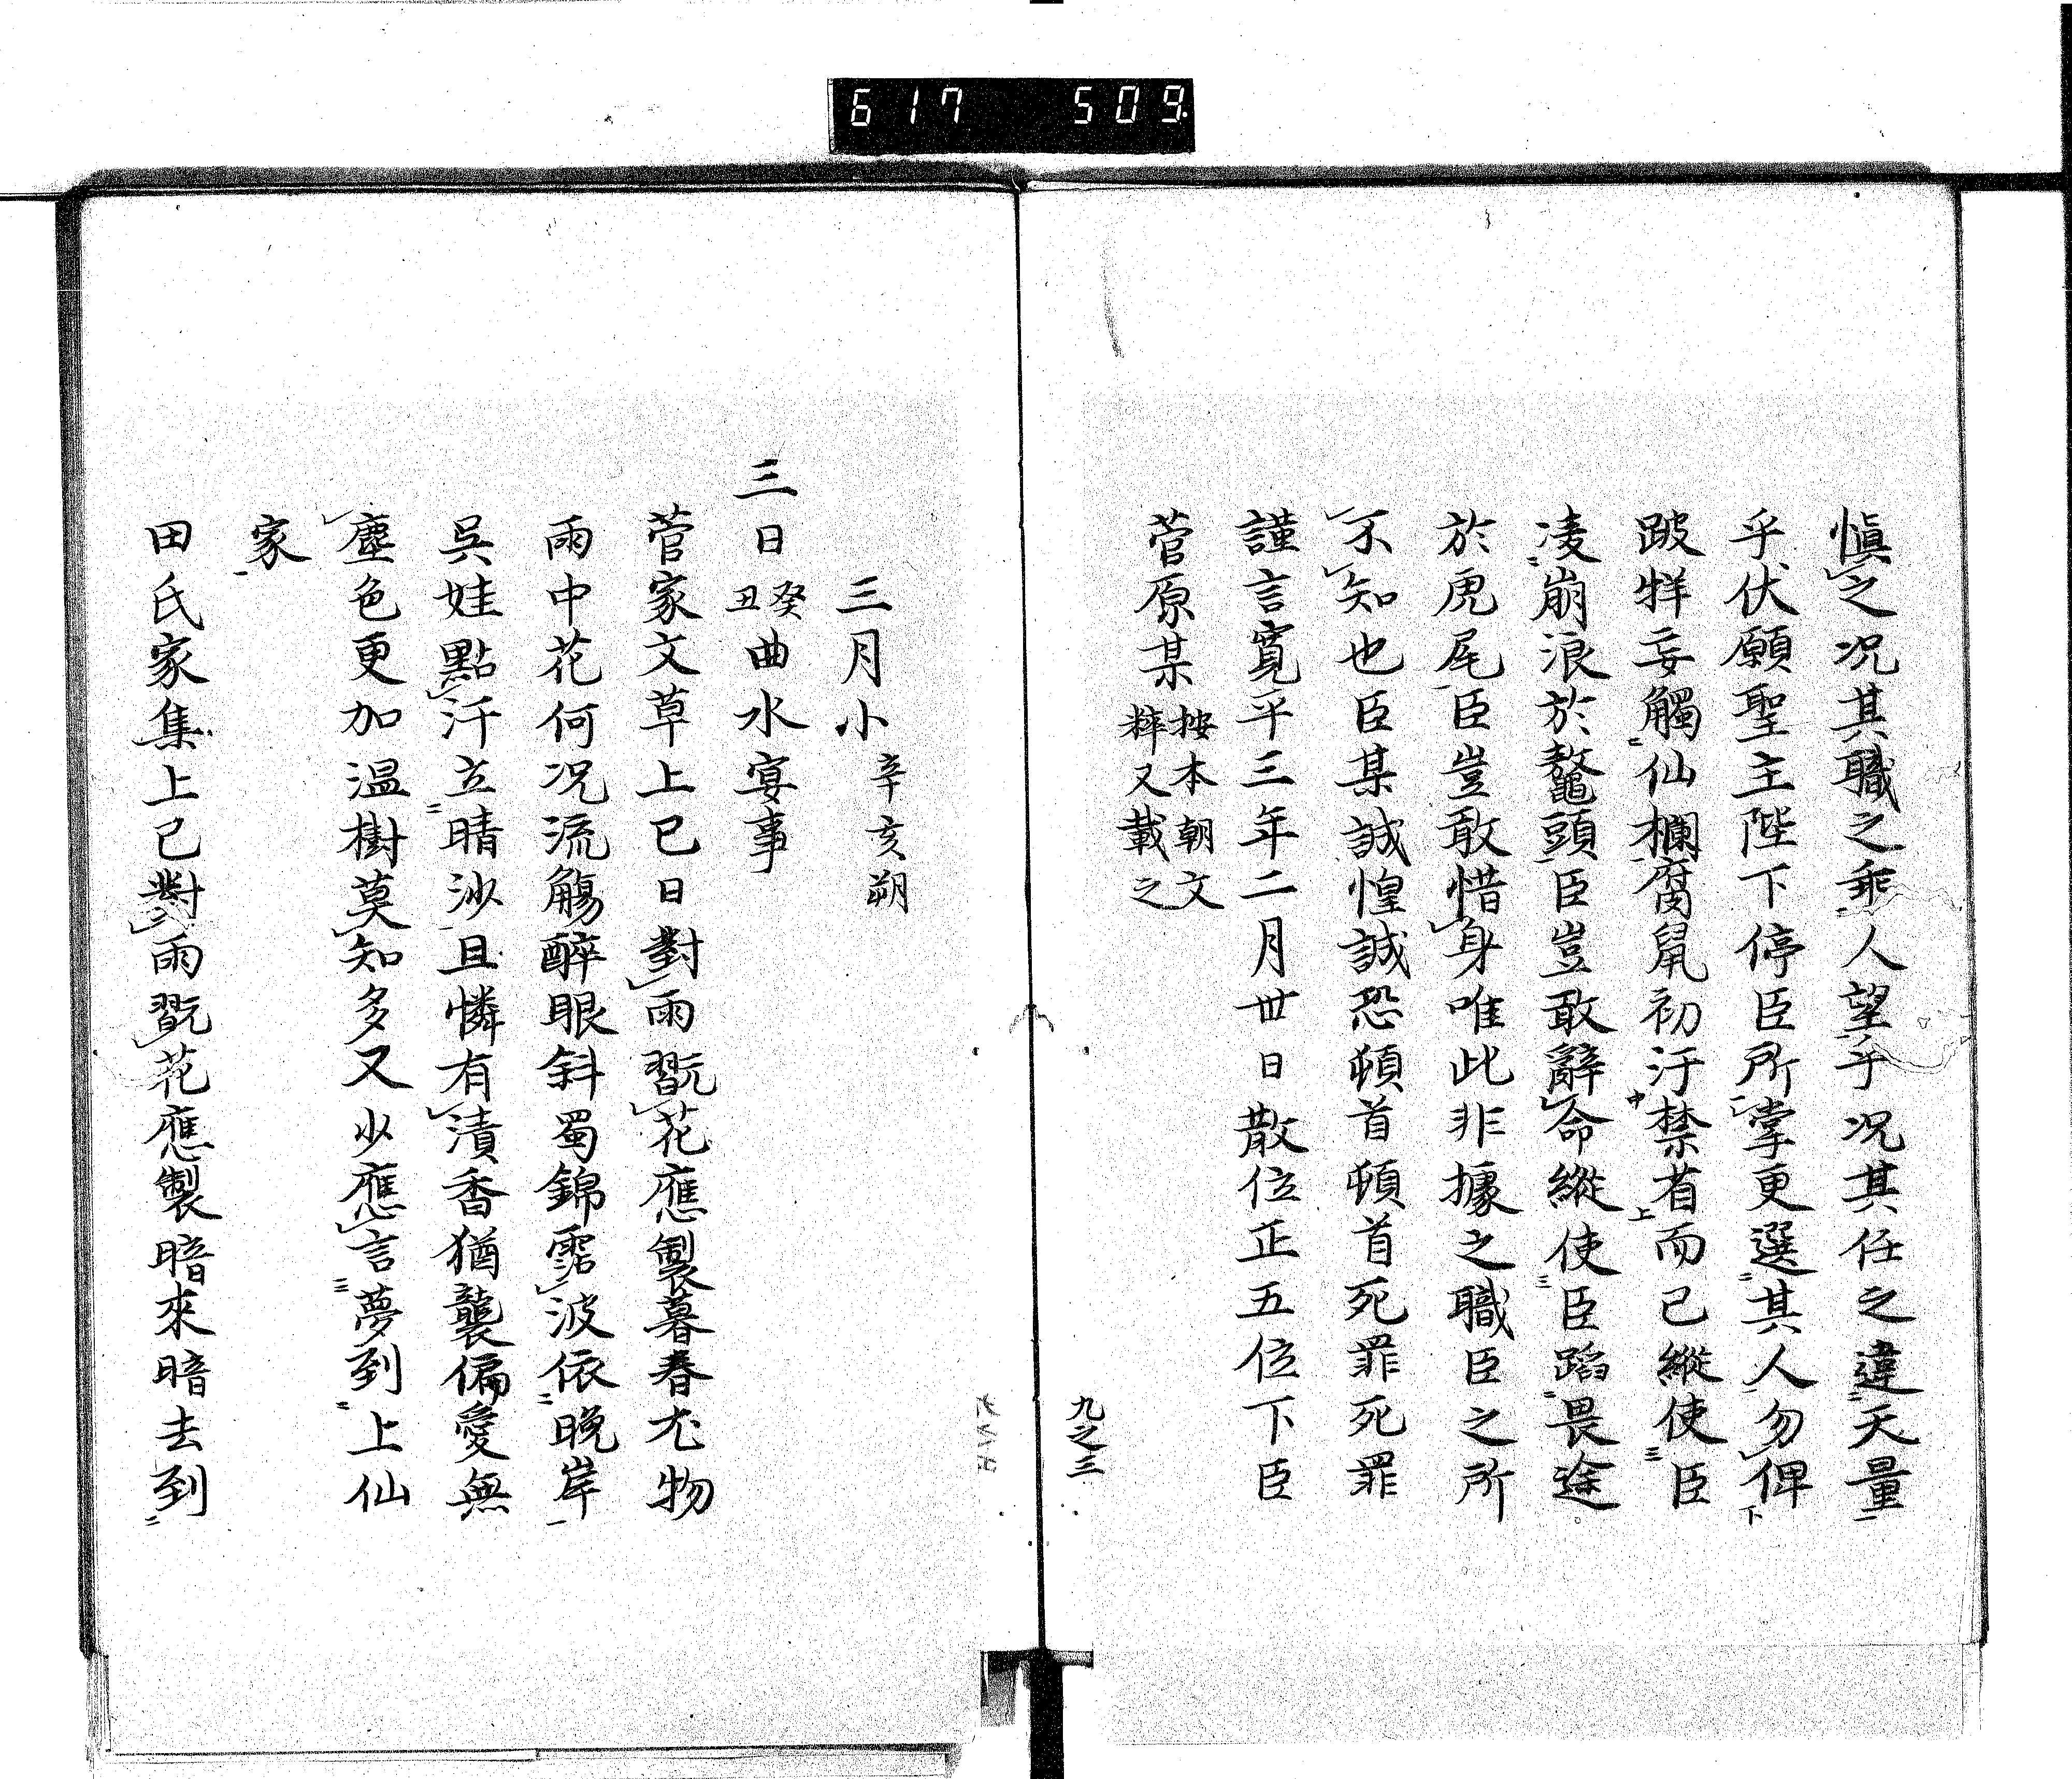 617 509
愼之況其職之乖人望乎況其任之違天量
乎伏願聖主陛下停臣所掌更選其人勿俾
跛牂妄觸仙欄腐鼠初汙禁省而已縱使臣
凌崩浪於鼇頭臣豈敢辭命縱使臣蹈畏途
於虎尾臣豈敢惜身唯此非據之職臣之所
不知也臣某誠惶誠恐頓首頓首死罪死罪
謹言寛平三年二月卅日散位正五位下臣
菅原某按本朝文粹又載之
九之三
三月小辛亥朔
三日癸丑曲水宴事
菅家文草上巳日對雨翫花應製暮春尤物
雨中花何況流觴醉眼斜蜀錦霑波依晚岸
吳娃點汗立晴沙且憐有漬香猶襲偏愛無
塵色更加溫樹莫知多又少應言夢到上仙
家
田氏家集上巳對雨翫花應製暗來暗去到